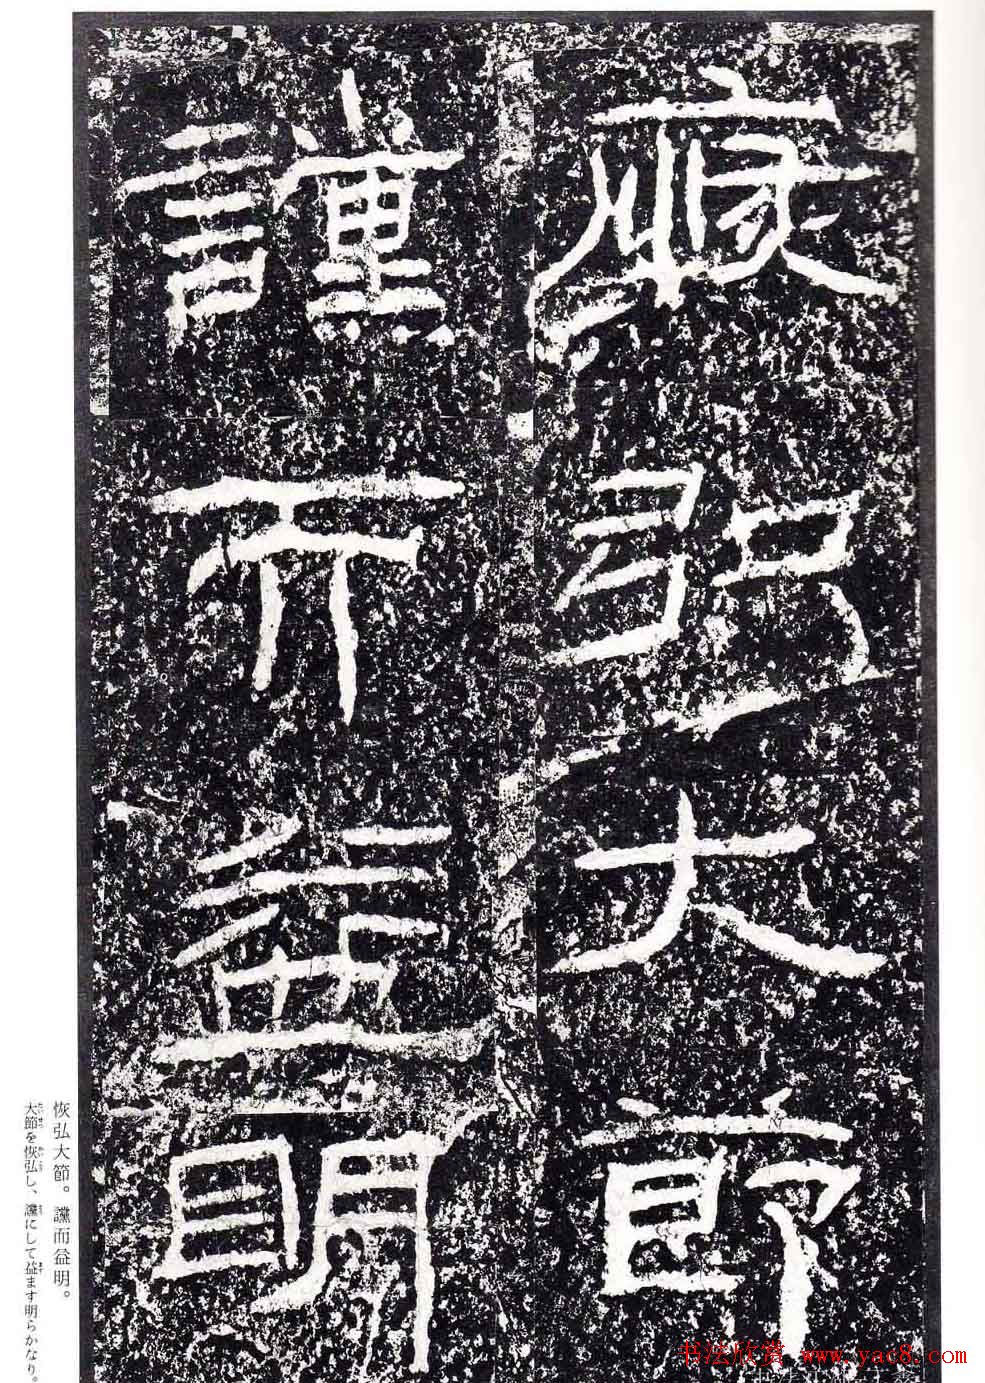 恢弘大節
讜而益明
恢弘大節。讜而益明。
大節を恢弘し、讜にして益ます明らかなり。
书法欣赏 www.yac8.com